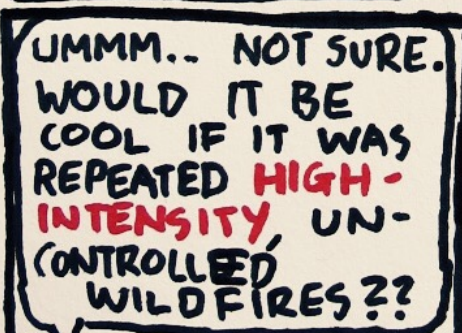 UMMM... NOT SURE.
WOULD IT BE
COOL IF IT WAS
REPEATED HIGH-
INTENSITY, UN-
CONTROLLED
WILDFIRES??